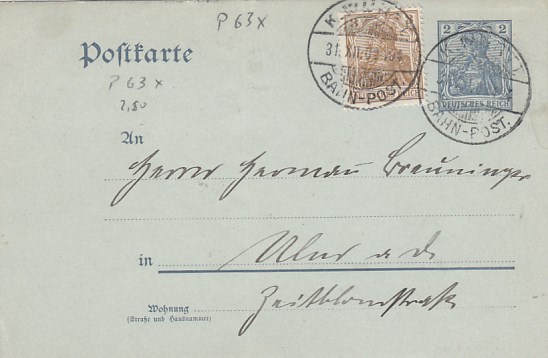 P 63 x
Postkarte
P 63 x
2,50
2 2
DEUTSCHES REICH
BAHN-POST.
BAHN-POST.
An
Herrn Hermann Breuninger
in Ulm a. d.
Wohnung
(Straße und Hausnummer)
Zeitblomstraße